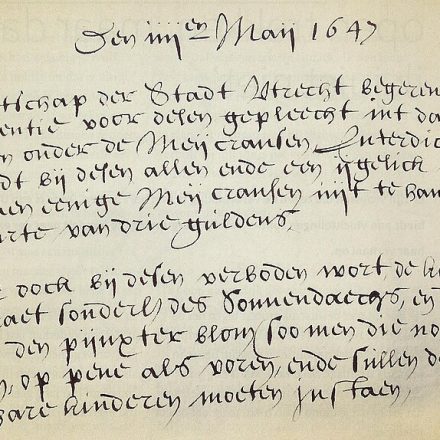 Den iiii en Maij 1647
tschap der Stadt Utrecht begeren
entie voor desen gepleecht int da
n onder de Meij cransen Interdic
dt bij desen allen ende een ijgelick
aen eenige Meij cransen uijt te han
urte van drie guldens,
r oock bij desen verboden wort de k
raet sonderl des Sonnendaechs, en
den pijnxter blom soo men die no
n, op pene als voren, ende sullen de
hare kinderen moeten instaen,